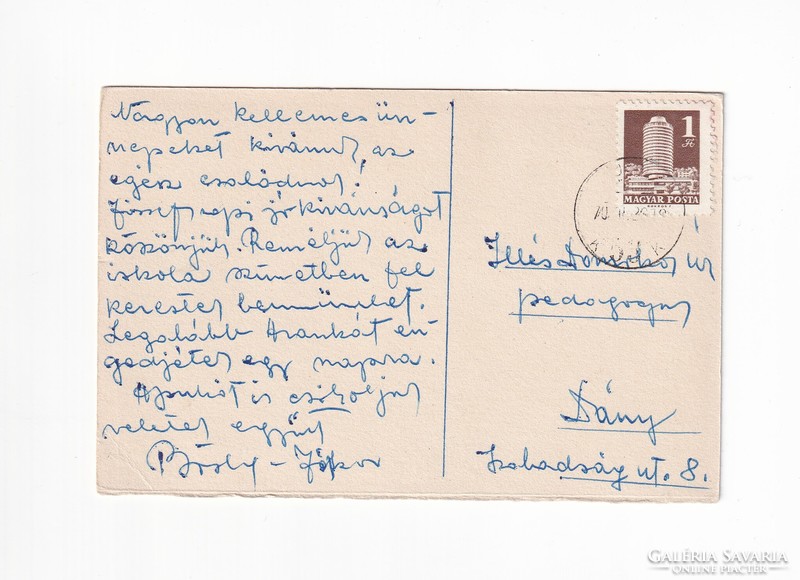 Nagyon kellemes ün-
nepeket kivánunk az
egész családnak!
József napi jókivánságot
köszönjük. Reméljük az
iskola szünetben fel
kerestek bennünket.
Legalább Arankát en-
gedjétek egy napra.
Apukát is csókoljuk
veletek együtt
1 Ft
MAGYAR POSTA
Illés Domokos úr
pedagogus
Dány
Szabadság ut. 8.
GALÉRIA SAVARIA
ONLINE PIACTÉR